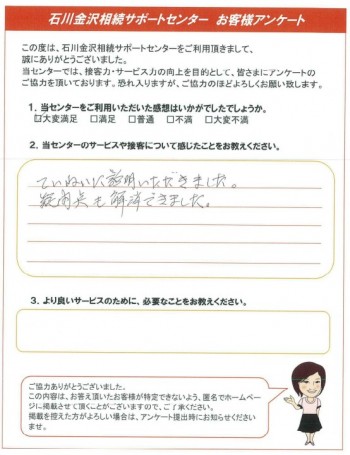 石川金沢相続サポートセンター お客様アンケート
この度は、石川金沢相続サポートセンターをご利用頂きまして、
誠にありがとうございました。
当センターでは、接客力・サービス力の向上を目的として、皆さまにアンケートの
ご協力を頂いております。恐れ入りますが、ご協力のほどよろしくお願い致します。
1. 当センターをご利用いただいた感想はいかがでしたでしょうか。
☑大変満足 □満足 □普通 □不満 □大変不満
2. 当センターのサービスや接客について感じたことをお教えください。
ていねいに説明いただきました。
疑問点も解決できました。
3. より良いサービスのために、必要なことをお教えください。
ご協力ありがとうございました。
この内容は、お答え頂いたお客様が特定できないよう、匿名でホームページ
に掲載させて頂くことがございますので、ご了承ください。
掲載を控えた方がよろしい場合は、アンケート提出時にお知らせください
ませ。